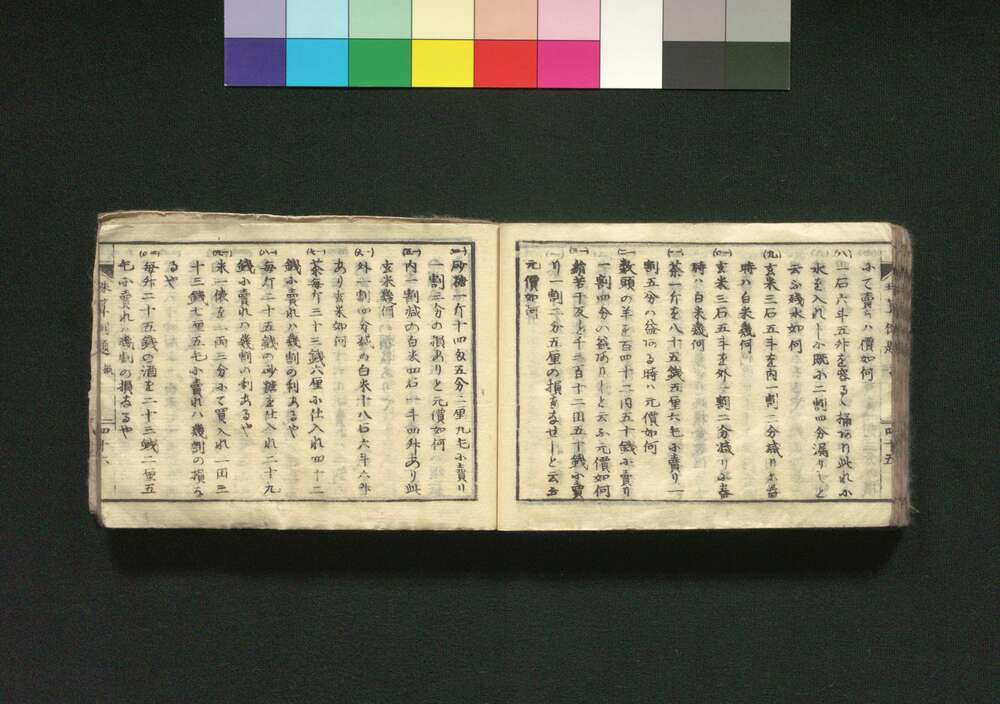 にて賣らハ價如何
一石六斗五升を容るゝ桶あり此れに
水を入れしに既に二割四分漏りしと
云ふ残水如何
玄米三石五斗を内一割二分減りに舂
時ハ白米幾何
玄米三石五斗を外一割二分減りに舂
時ハ白米幾何
茶一斤を八十五銭五厘六毛に賣り一
割五分の益ある時ハ元價如何
数頭の羊を百四十二円五十銭に賣り
一割四分の益ありしと云ふ元價如何
若干反を千三百十二円五十銭に賣
り一割二分五厘の損をなせしと云ふ
元價如何
砂糖一斤十四銭五分二厘九毛に賣り
一割三分の損ありと元價如何
内一割減の白米四石一斗四升あり此
玄米幾何
外一割四分減の白米十八石六斗六升
あり玄米如何
茶毎斤三十三銭六厘に仕入れ四十二
銭に賣れハ幾割の利あるや
毎斤二十五銭の砂糖を仕入れ二十九
銭に賣れハ幾割の利あるや
米一俵を一両三分にて買入れ一円三
十三銭七厘五毛に賣れハ幾割の損な
るや
毎升二十五銭の酒を二十三銭二厘五
毛に賣れハ幾割の損なるや